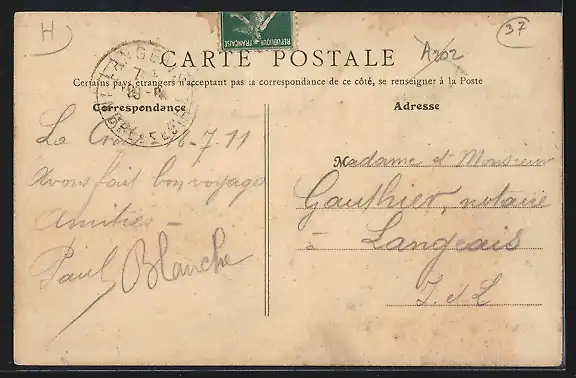 H
37
A202
REPUBLIQUE FRANÇAISE
CARTE POSTALE
Certains pays étrangers n'acceptant pas la correspondance de ce côté, se renseigner à la Poste
Correspondance
Adresse
La 8-7.11
Avons fait bon voyage
Amitiés -
Paul Blanche
Madame et Monsieur
Gauthier, notaire
à
Langeais
I. et L